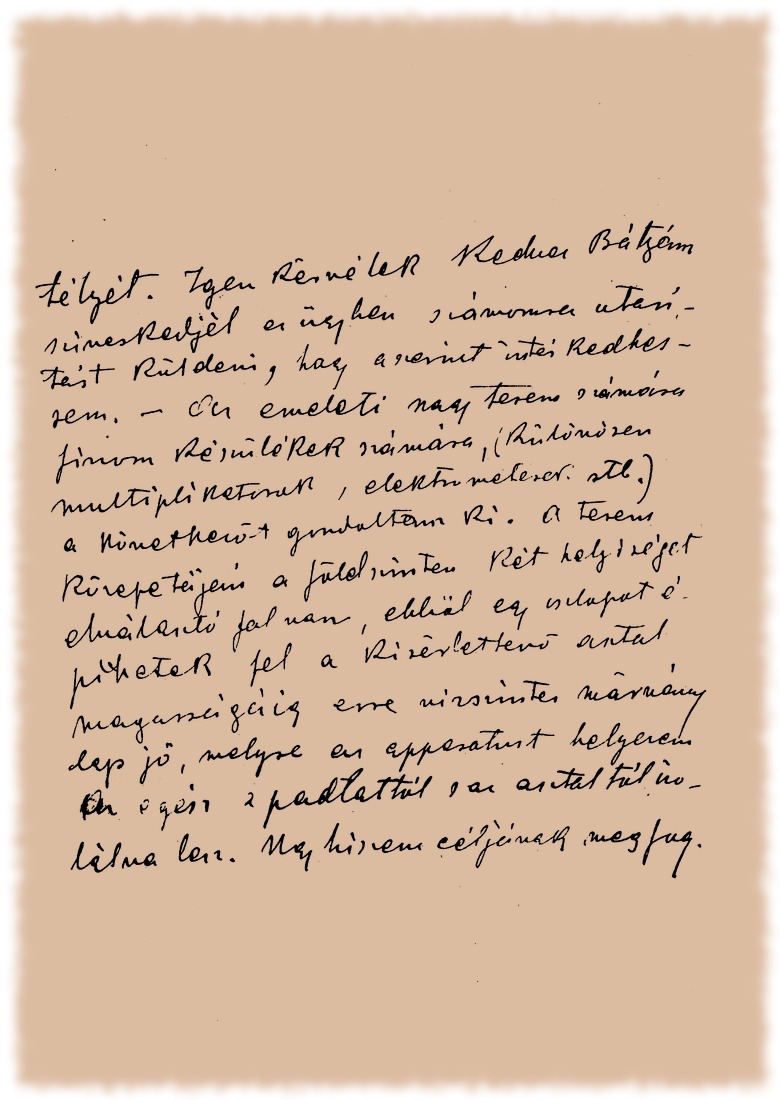 télyét. Igen kérnélek Kedves Bátyám
szíveskedjél ez ügyben számomra utasí-
tást küldeni, hogy aszerint intézkedhes-
sem. – Az emeleti nagy terem számára
finom készülékek számára, (különösen
multiplikatorok, elektrometerek stb.)
a következő-t gondoltam ki. A terem
közepetáján a földszinten két helyiséget
elválasztó fal van, ebből egy oszlopot é-
pítetek fel a kisérlettevő asztal
magasságáig erre vizszintes márvány
lap jő, melyre az apparatust helyezem
Az egész a padlattól s az asztaltól izo-
lálva lesz. Ugy hiszem céljának meg fog.